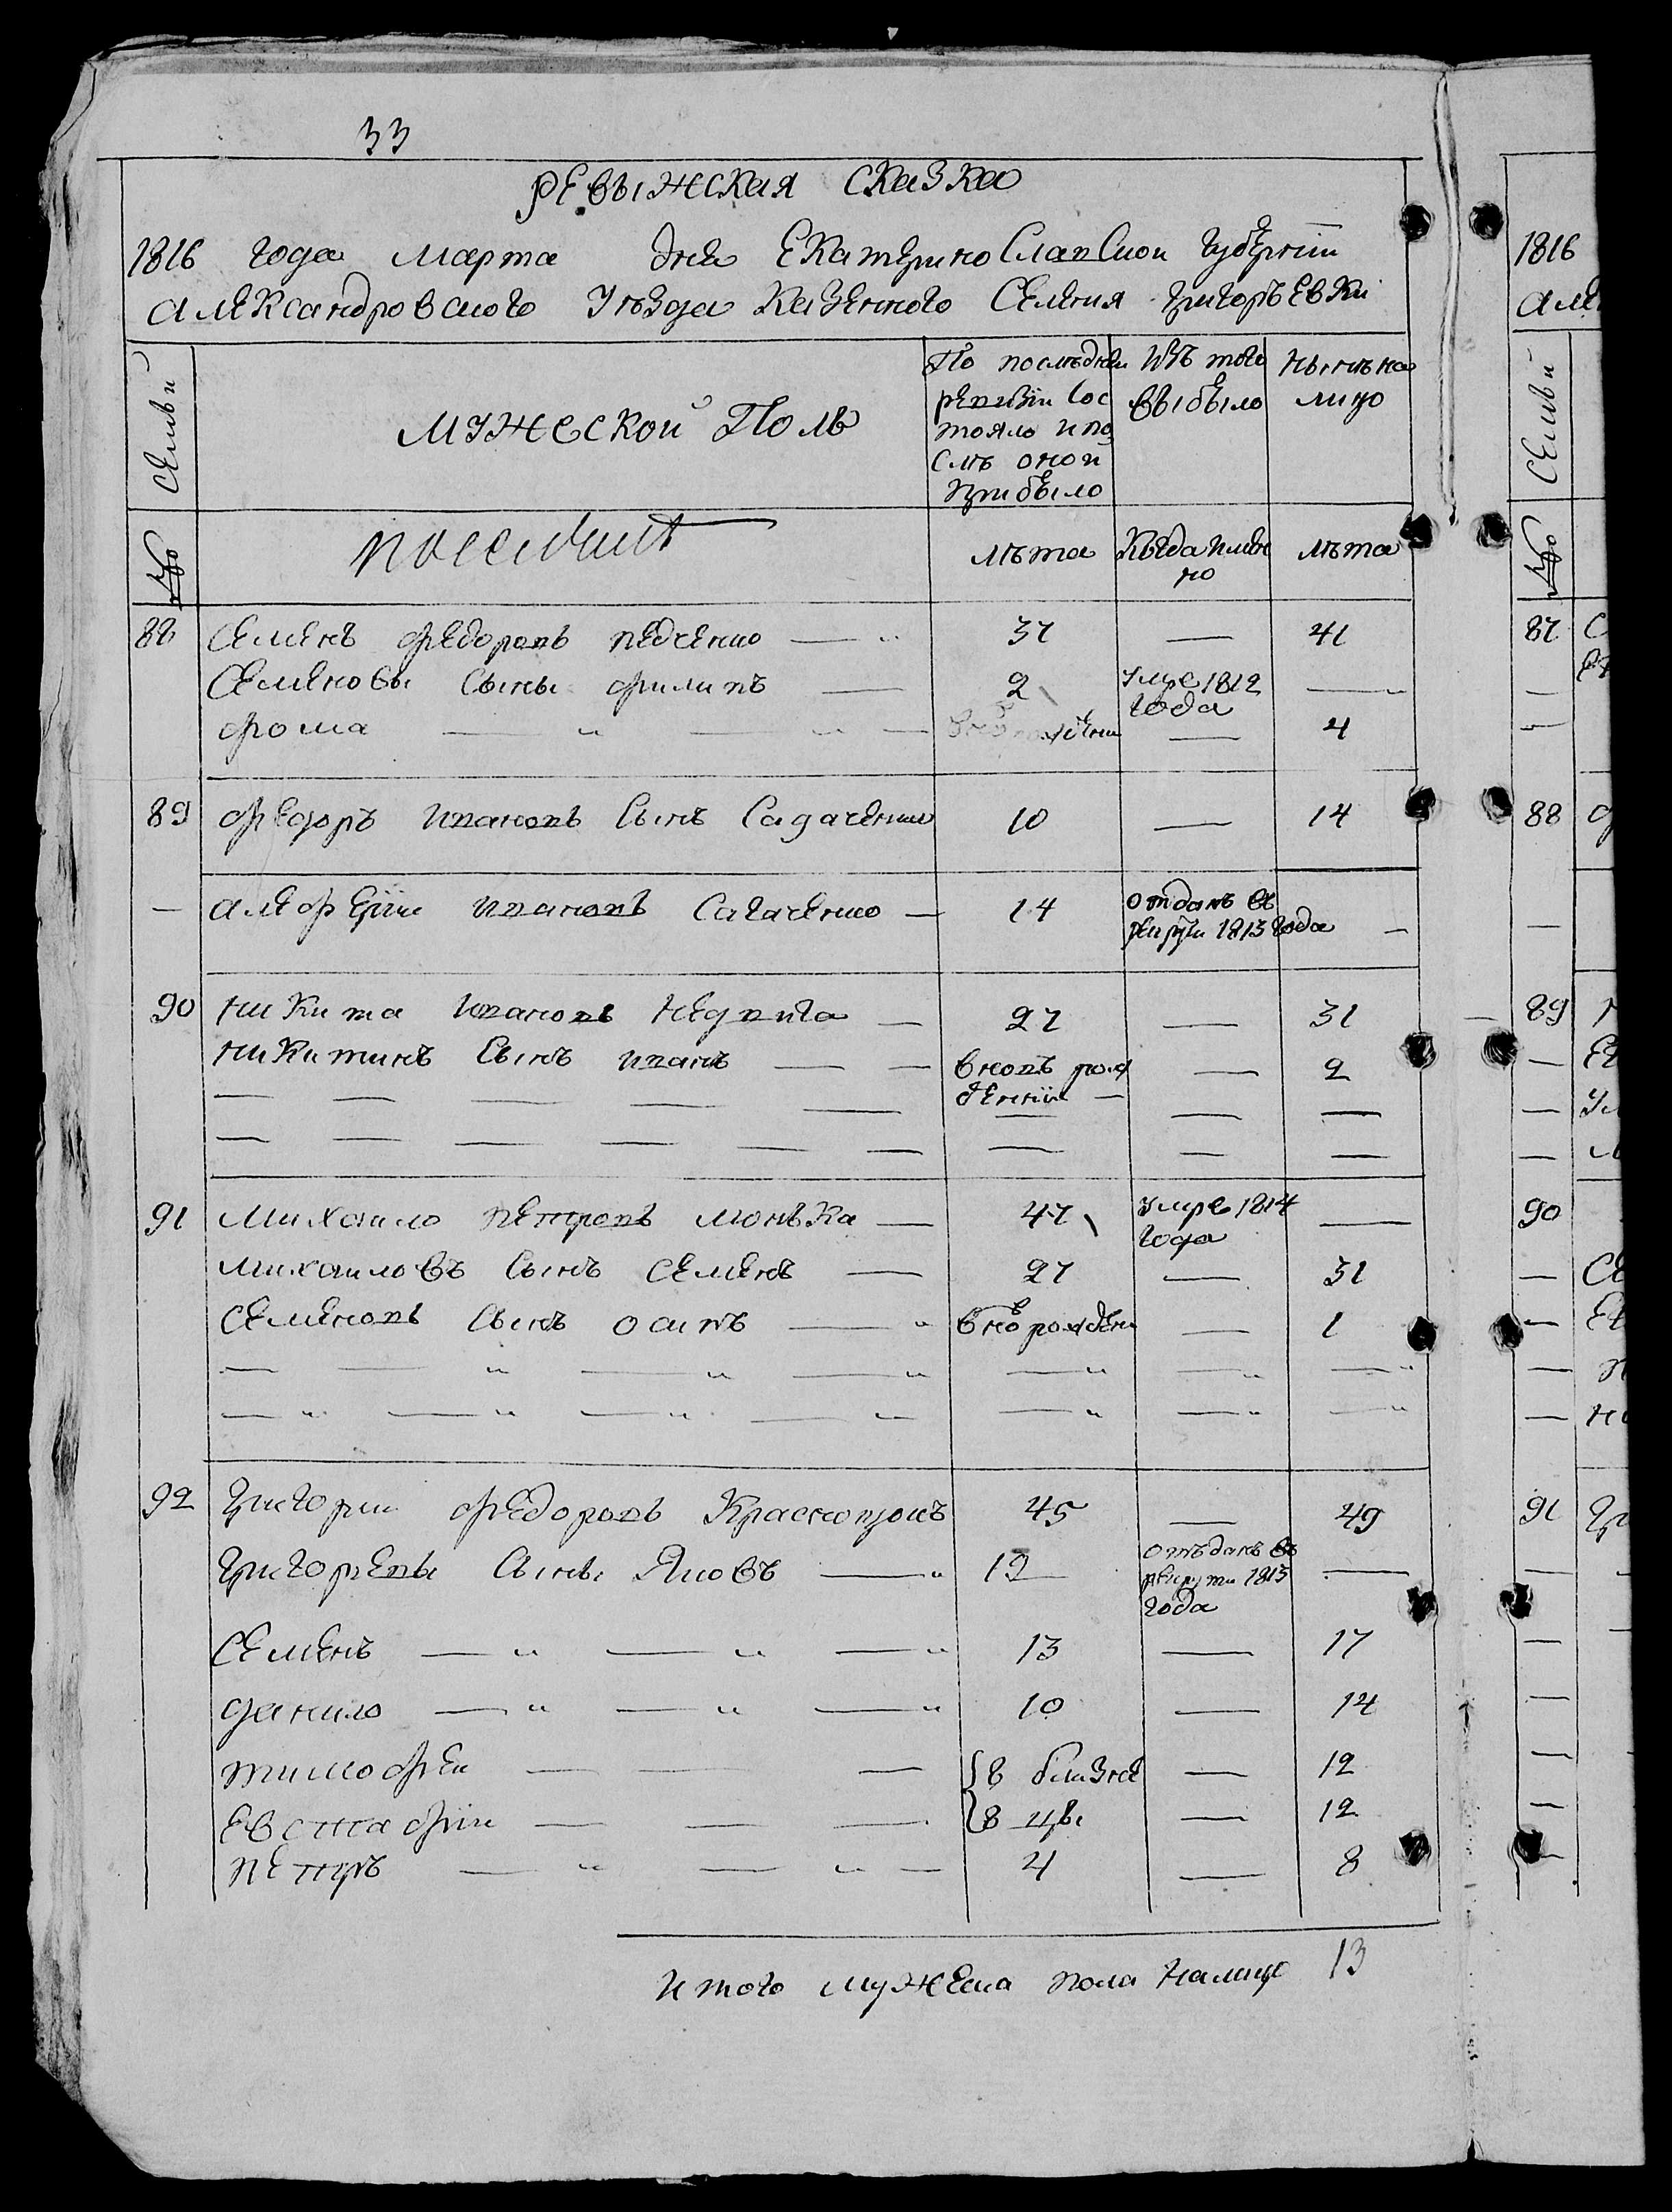 33
Ревыжская сказка
1816 года марта дня Екатеринославской губернїи
Александровского уѣзда казенного селения Григорьевки
Семьи
Мужеской поль
По последней
ревизїи сос
тояло и по
слѣ оной
прибыло
Изъ того
выбыло
Нынѣ на
лицо
№
поселянѣ
лѣта
Когда имен
но
лѣта
88 Семенъ Федоровъ Педченко 37 — 41
Семеновы сыны Филипъ — 2 умре 1812
года —
Фома — вновь рожден — 4
89 Федоръ Ивановъ сынъ Сагаченко 10 — 14
— Алеферїи Ивановъ Сагаченко — 14 отданъ въ
рекруты 1813 года —
90 Никита Ивановъ Недвига — 27 — 31
Никитинъ сынъ Иванъ — вновь рож
денїи — 2
91 Михаило Петровъ Монька — 47 умре 1814
года —
Михаиловъ сынъ Семенъ — 27 — 31
Семеновъ сынъ Осипъ — вновь рожден — 1
92 Григории Федоровъ Краснощокъ 45 — 49
Григорьевы сыны Яковъ — 19 отъданъ въ
рекруты 1813
года —
Семенъ — 13 — 17
Данило — 10 — 14
Тимофеи — 8 близне — 12
Евстафїи — 8 цы — 12
Петръ — 4 — 8
Итого мужеска пола налицо 13
1816
Але
Семьи
№
87 С
88 Ф
89 Н
90
91 Гр